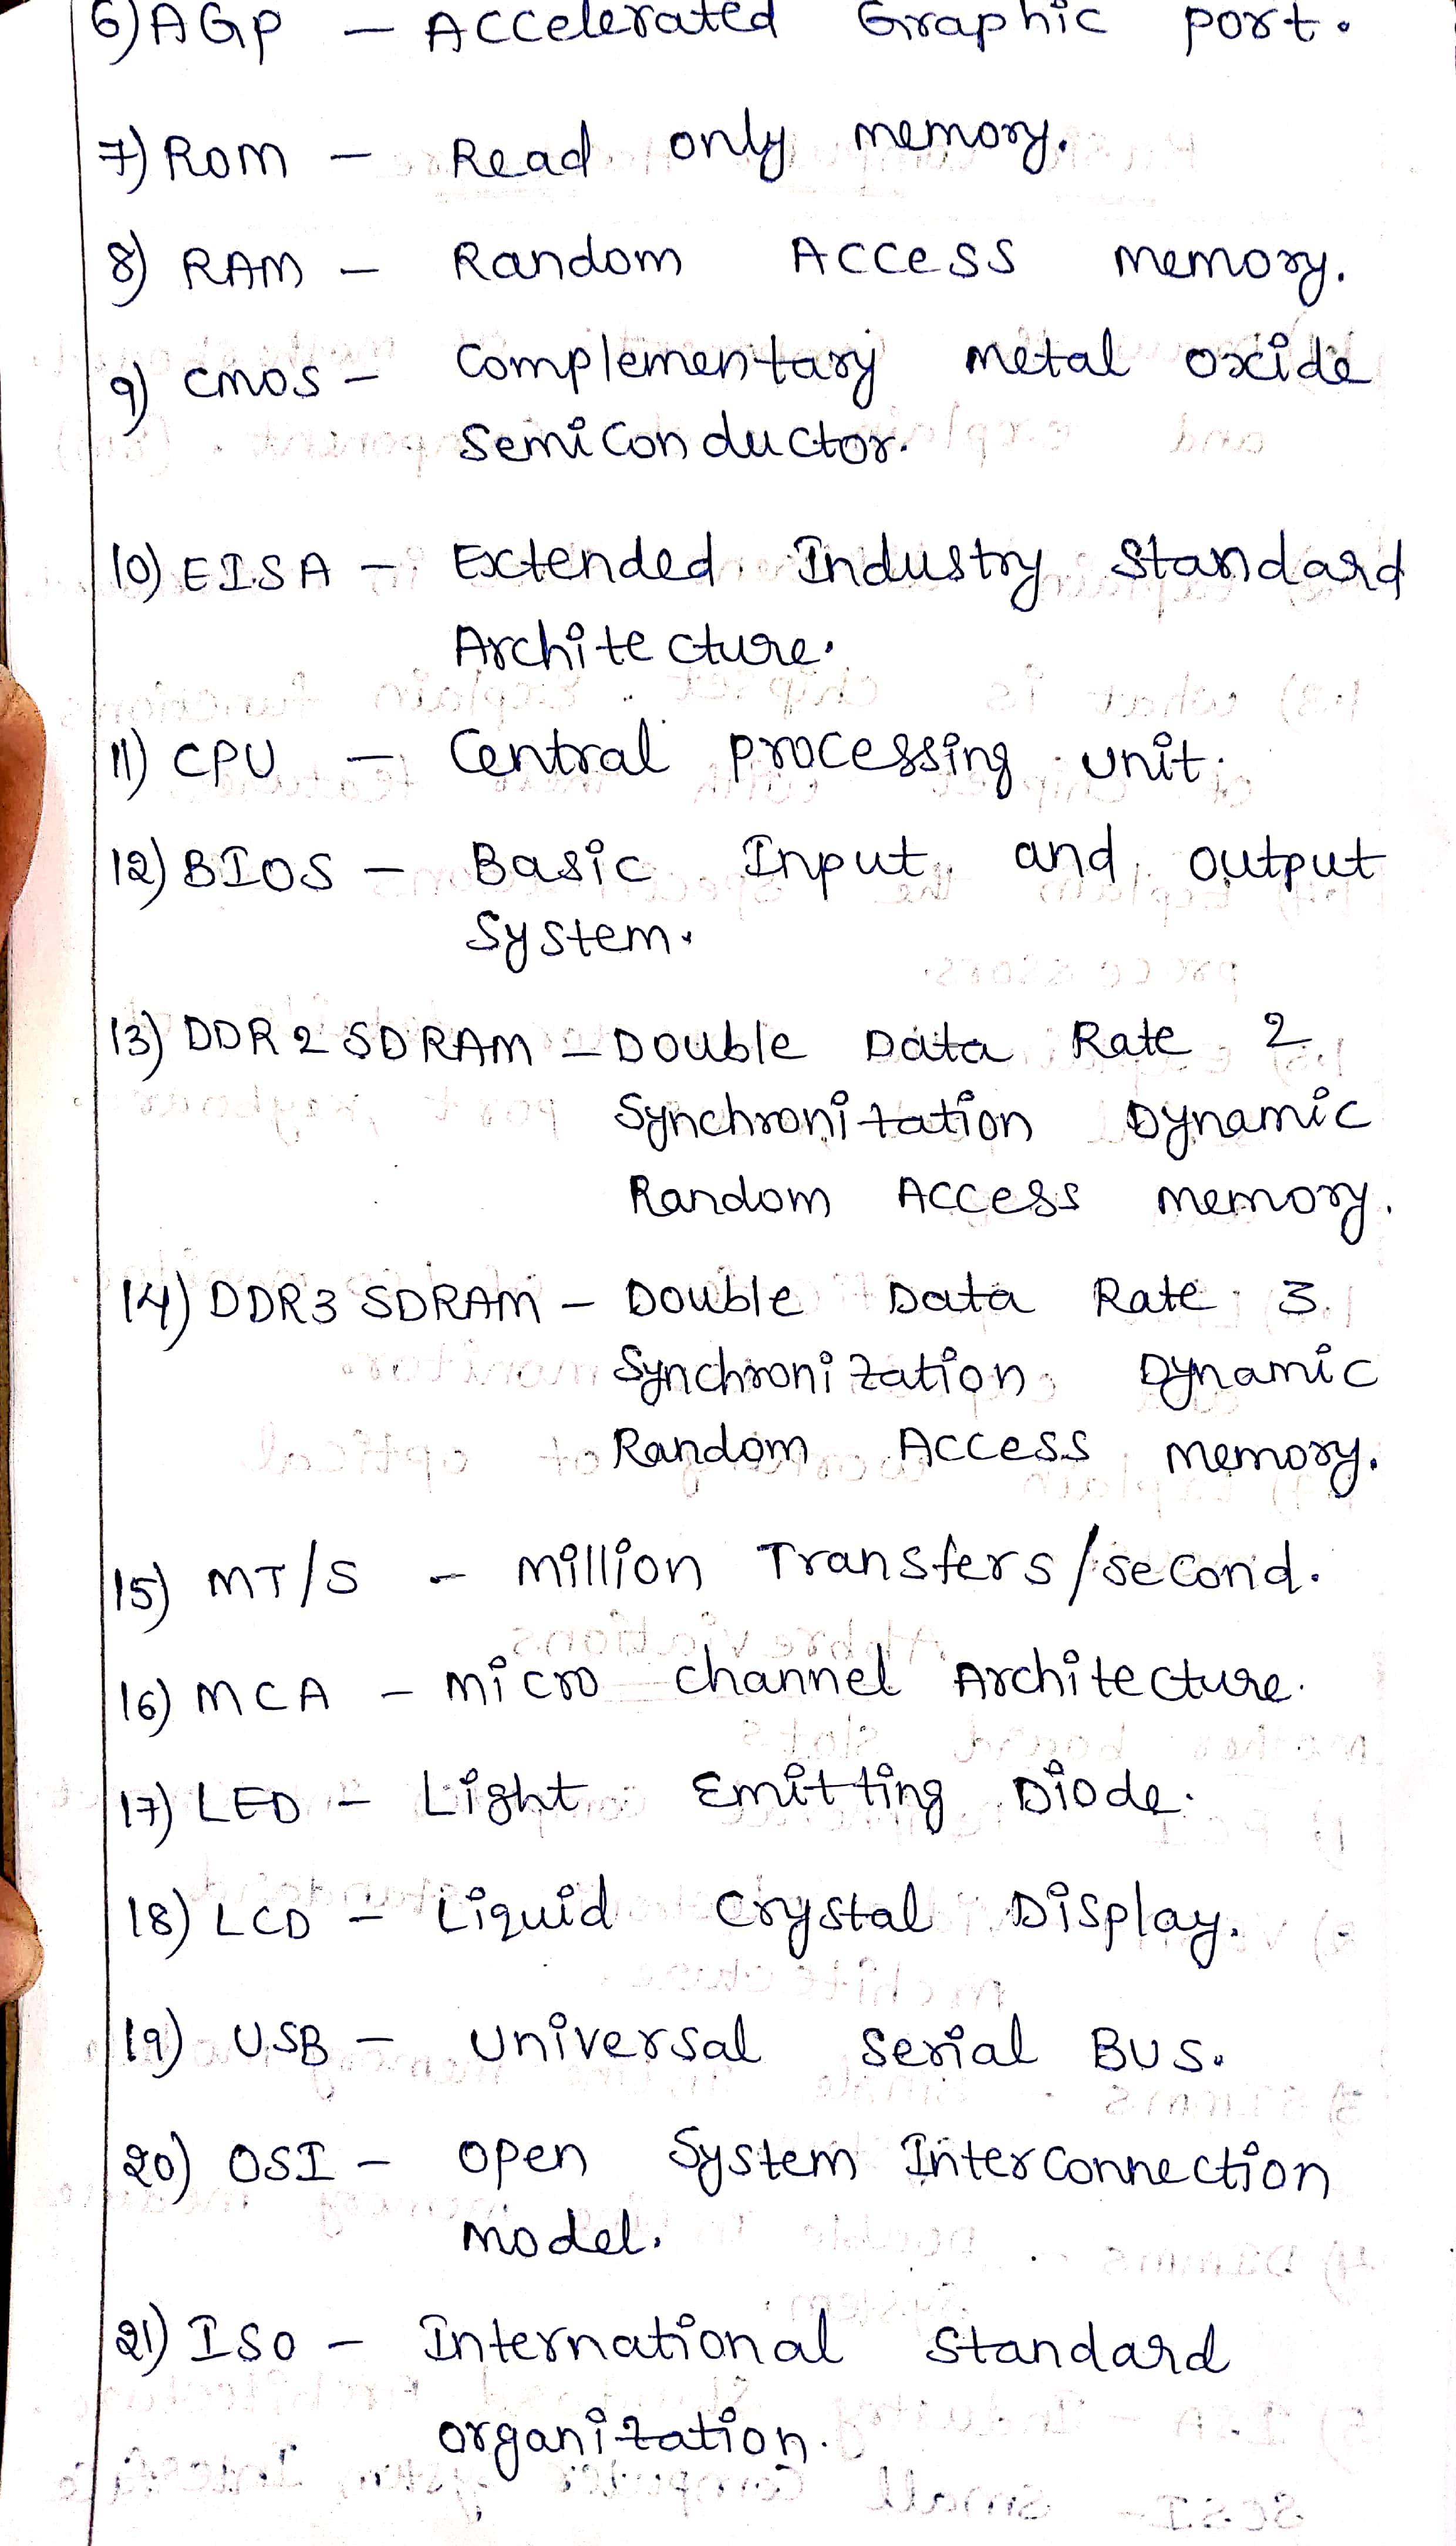 6) AGP - Accelerated Graphic port.
7) Rom - Read only memory.
8) RAM - Random Access memory.
9) CMOS - Complementary metal oxide
Semi Conductor.
10) EISA - Extended Industry Standard
Architecture.
11) CPU - Central processing unit.
12) BIOS - Basic Input and output
System.
13) DDR 2 SDRAM - Double Data Rate 2
Synchronization Dynamic
Random Access memory.
14) DDR3 SDRAM - Double Data Rate 3
Synchronization Dynamic
Random Access memory.
15) MT/S - million Transfers/second.
16) MCA - micro channel Architecture.
17) LED - Light Emitting Diode.
18) LCD - Liquid Crystal Display.
19) USB - Universal Serial BUS.
20) OSI - open System InterConnection
model.
21) ISO - International Standard
organization.